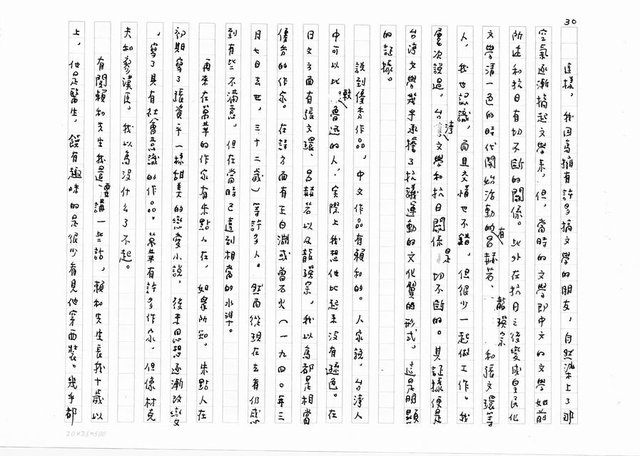 30
這樣，我因為擁有許多搞文學的朋友，自然染上了那
空氣逐漸搞起文學來，但，當時的文學即中文的文學如前
所述和抗日有切不斷的關係。此外在抗日之後變成皇民化
文學清一色的時代開始活動的有呂赫若、龍瑛宗和張文環等
人，我也認識，而且交情也不錯，但很少一起做工作。我
屢次說過，台灣文學和抗日關係是切不斷的。其証據便是
台灣文學幾乎承擔了抗議運動的文化質的形式，這是明顯
的証據。
說到優秀作品，中文作品有賴和的。人家說，台灣人
中可以比魯迅的人，實際上我想他比起來沒有遜色。在
日文方面有張文環、呂赫若以及龍瑛宗，我以為都是相當
優秀的作家。在詩方面有王白淵或曾石火（一九四〇年三
月七日去世，三十二歲）等許多人。然而從現在去看仍感
到有些不滿意，但在當時已達到相當的水準。
再來在萬華的作家有朱點人在，如眾所知，朱點人在
初期寫了張資平一樣甜美的戀愛小說，後來思想逐漸改變
，寫了具有社會意識的作品。萬華有許多作家，但像林克
夫和黎湿民。我以為沒什麼了不起。
有關賴和先生我還要講一些話，賴和先生長我十歲以
上，他是醫生，饒有趣味的是很少看見他穿西裝。幾乎都
20×25=500